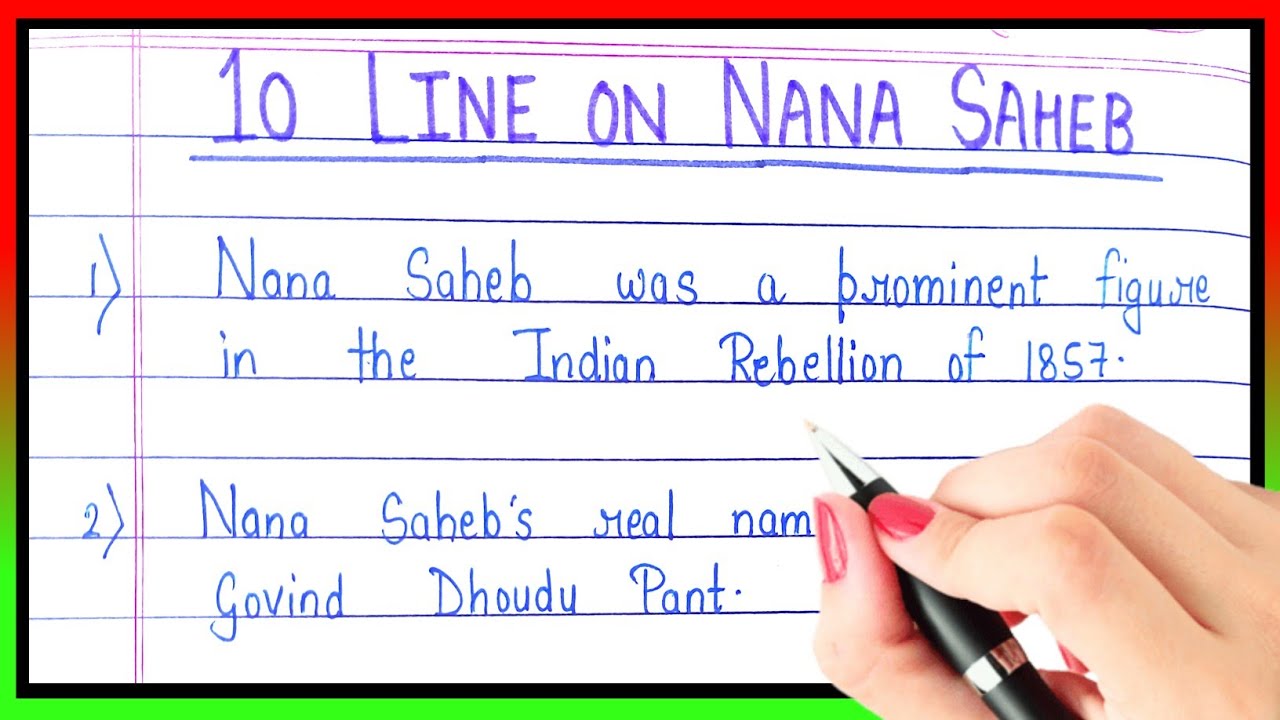 10 LINE ON NANA SAHEB
1) Nana Saheb was a prominent figure
in the Indian Rebellion of 1857.
2) Nana Saheb's real nam
Govind Dhoudu Pant.